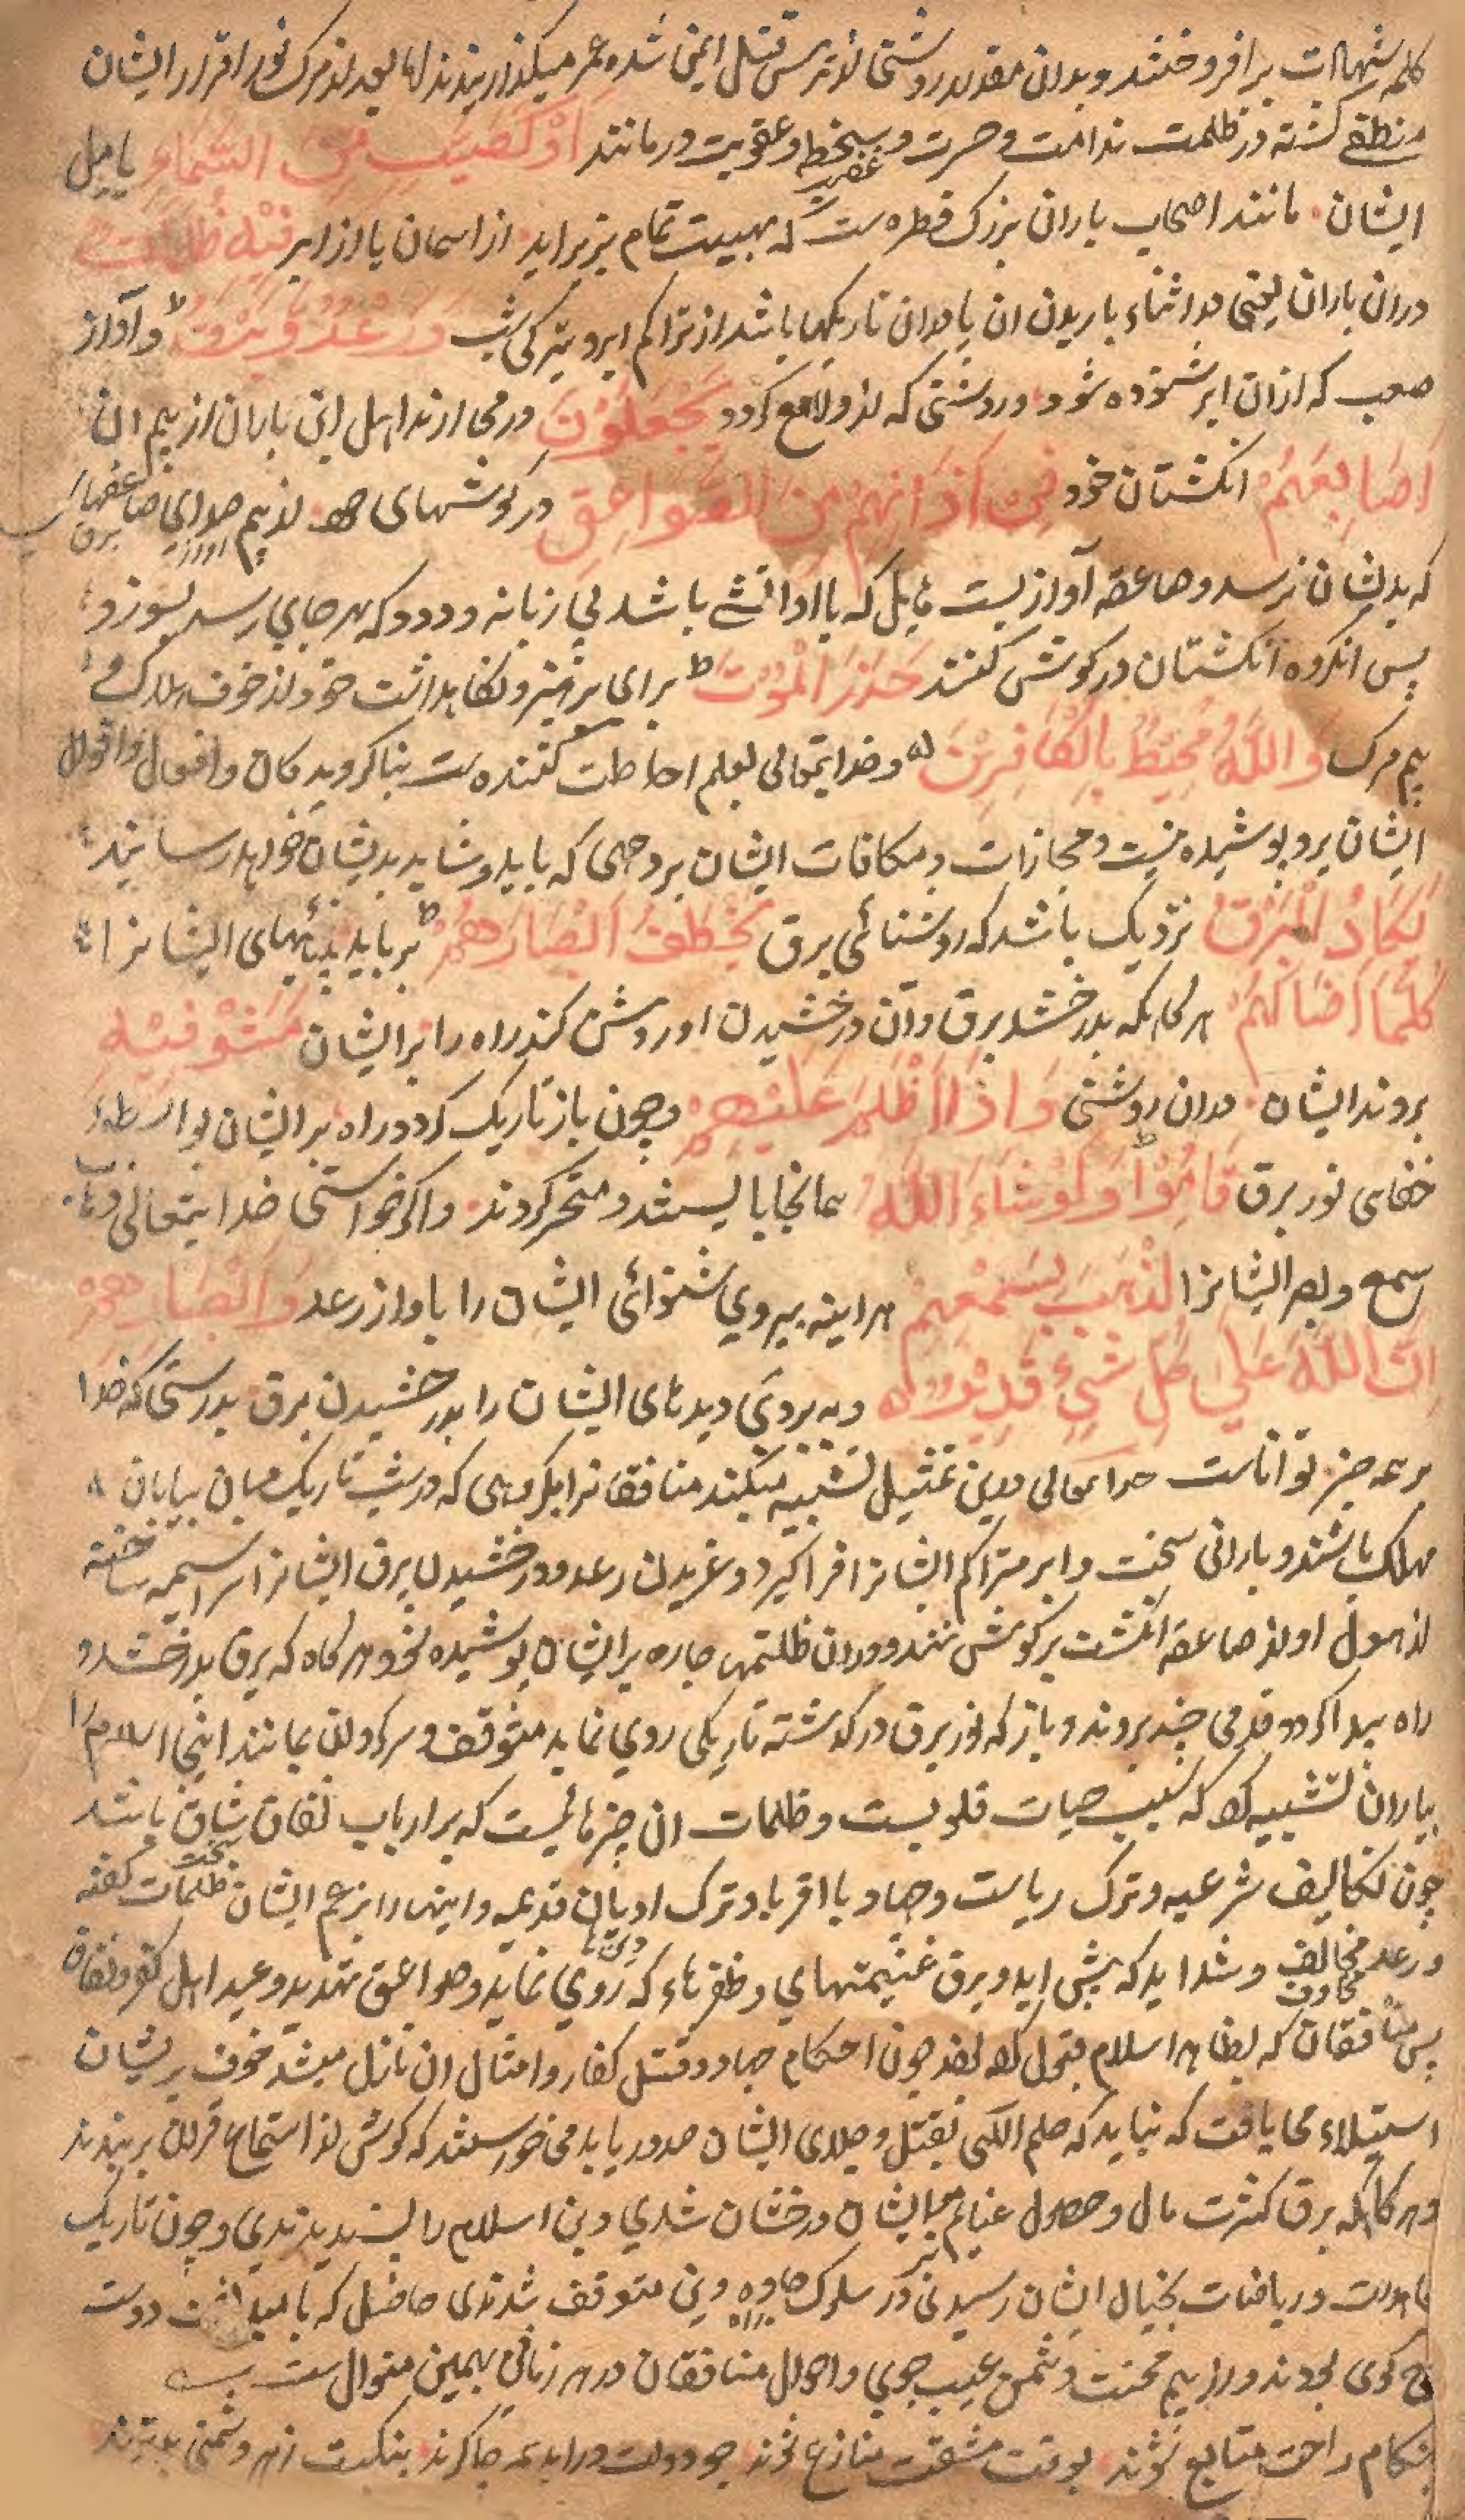 کلمه شهادت برافروختند و بدان مقدار روشنی از ترس قتل ایمن شده عمر میگذرانیدند اما بعد از مرک نور اقرار ایشان
منطفی کشته در ظلمت ندامت و حسرت و سخط و عقوبت درمانند أَوْ كَصَيِّبٍ مِنَ السَّمَاءِ یا مثل
غضب
ایشان مانند اصحاب باران بزرک قطره ست که بهیبت تمام بزیر اید از اسمان یا از ابر فِيهِ ظُلُمَاتٌ
دران باران یعنی در اثناء باریدن ان یا دران تاریکیها باشد از تراکم ابر و تیرکی شب وَرَعْدٌ وَبَرْقٌ ط و آواز
صعب که ازان ابر شنوده شود و روشنی که ازو لامع کردد يَجْعَلُونَ در می ارند اهل این باران از بیم ان
أَصَابِعَهُمْ انکشتان خود فِي آذَانِهِمْ مِنَ الصَّوَاعِقِ در کوشهای خود از بیم صدای صاعقهای
که بدیشان نرسد و صاعقه آوازیست هایل که با او آتشی باشد بی زبانه و دود که بهر جای رسد بسوزد
پس انکروه انکشتان در کوش کنند حَذَرَ الْمَوْتِ ط برای پرهیز و نکاهداشت خود از خوف هلاک و
بیم مرک وَاللَّهُ مُحِيطٌ بِالْكَافِرِينَ و خدایتعالی بعلم احاطت کننده ست بناکرویدکان و افعال و اقوال
ایشان برو پوشیده نیست و مجازات و مکافات ایشان بر وجهی که باید و شاید بدیشان خواهد رسانید
يَكَادُ الْبَرْقُ نزدیک باشد که روشنائی برق يَخْطَفُ أَبْصَارَهُمْ ط برباید بینائیهای ایشانرا
كُلَّمَا أَضَاءَ لَهُمْ هر کاه که بدرخشد برق و آن درخشیدن او روشن کند راه را بر ایشان مَشَوْا فِيهِ
بروند ایشان دران روشنی وَإِذَا أَظْلَمَ عَلَيْهِمْ و چون باز تاریک کردد راه بر ایشان بواسطه
خفای نور برق قَامُوا وَلَوْ شَاءَ اللَّهُ همانجا بایستند و متحیر کردند و اکر خواستی خدایتعالی
سمع و بصر ایشانرا لَذَهَبَ بِسَمْعِهِمْ هراینه ببردی شنوائی ایشان را باواز رعد وَأَبْصَارِهِمْ
إِنَّ اللَّهَ عَلَى كُلِّ شَيْءٍ قَدِيرٌ و ببردی دیدهای ایشان را بدرخشیدن برق بدرستی که خدا
بر همه چیز تواناست خدایتعالی درین تمثیل تشبیه میکند منافقانرا بکروهی که در شب تاریک میان بیابان
مهلک باشند و بارانی سخت و ابر متراکم ایشانرا فراکیرد و غریدن رعد و درخشیدن برق ایشانرا سراسیمه ساخته
از هول او از صاعقه انکشت بر کوش نهند و دران ظلمتها چاره بر ایشان پوشیده شود هر کاه که برق بدرخشد و
راه پیدا کردد قدمی چند بروند و باز که نور برق در کذشته تاریکی روی نماید متوقف و سرکردان بمانند اینجا اسلام را
بباران تشبیه کرد که سبب حیات قلوبست و ظلمات ان چیزهائیست که بر ارباب نفاق شاق باشد
سخت
چون تکالیف شرعیه و ترک ریاست و جهاد با اقربا و ترک ادیان قدیمه و اینها را بزعم ایشان ظلمات کفته
و رعد مخالف و شداید که پیش اید و برق غنیمتهای و ظفرهاء که روی نماید و صواعق تهدید و وعید اهل کفر و نفاق
پس منافقان که بظاهر اسلام قبول کرده بودند چون احکام جهاد و قتل کفار و امثال ان نازل میشد خوف بریشان
استیلاء می یافت که نباید که حکم الهی بقتل و جلای ایشان صدور یابد میخواستند که کوش از استماع قرآن بر بندند
و هر کاه که برق کثرت مال و حصول غنایم بر ایشان درخشان شدی دین اسلام را پسندیدندی و چون تاریک
در یافتات بخیال ایشان رسیدی در سلوک جاده دین متوقف شدندی حاصل که بامید دوست
کوی بودند و از بیم محنت دشمن عیب جوی و احوال منافقان در هر زمانی بهمین منوال ست
بهنکام راحت متابع شوند بوقت مشقت منازع شوند چو دولت دراید همه چاکرند بنکبت ز هر دشمنی بدترند